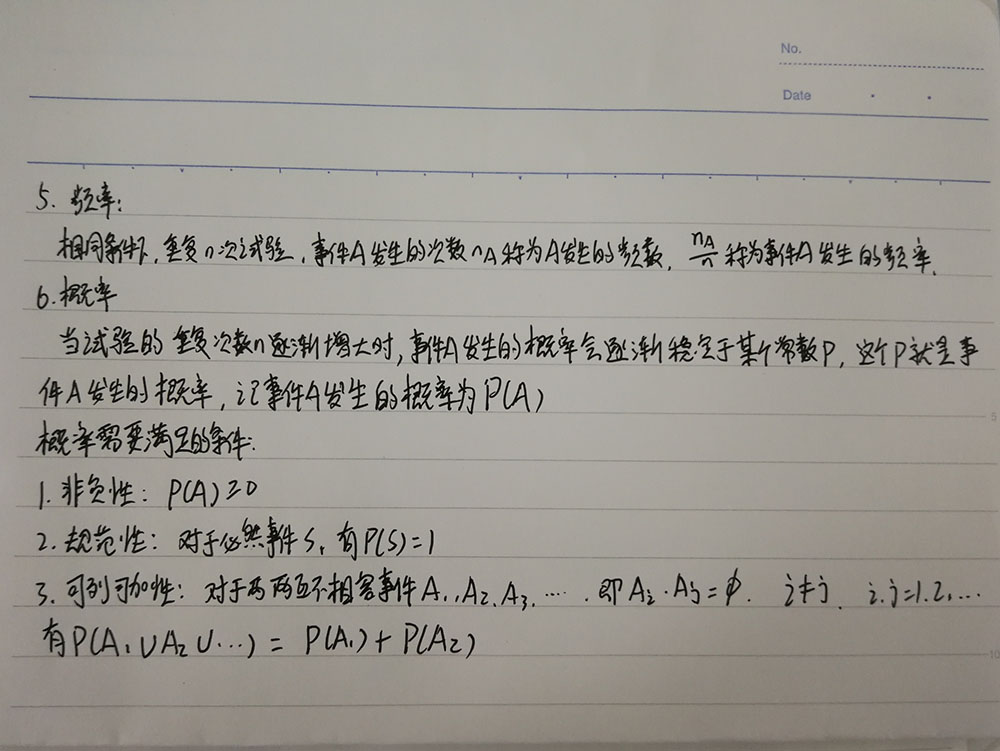 No.
Date
5. 频率:
相同条件下, 重复n次试验, 事件A发生的次数nA称为A发生的频数, nA/n 称为事件A发生的频率.
6. 概率
当试验的重复次数n逐渐增大时, 事件A发生的概率会逐渐稳定于某个常数P, 这个P就是事
件A发生的概率, 记事件A发生的概率为P(A)
5
概率需要满足的条件:
1. 非负性: P(A)≥0
2. 规范性: 对于必然事件S, 有P(S)=1
3. 可列可加性: 对于两两互不相容事件A₁, A₂, A₃, …. 即Aᵢ·Aⱼ=ϕ. i≠j. i.j=1.2,…
有P(A₁∪A₂∪…) = P(A₁)+P(A₂)
10